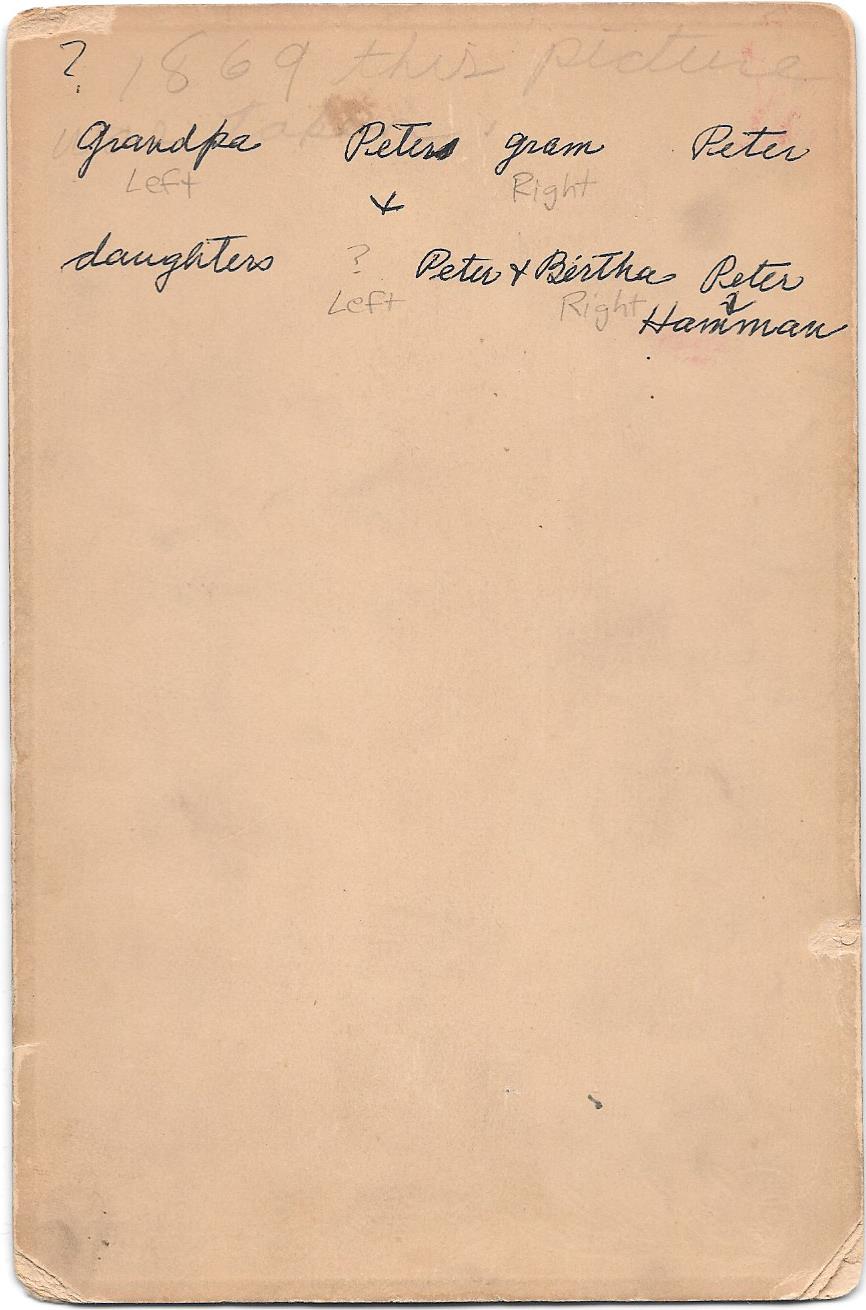 ? 1869 this picture
was taken
Grandpa Peters gram Peter
Left Right
+
daughters ? Peter + Bertha Peter
Left Right Hamman